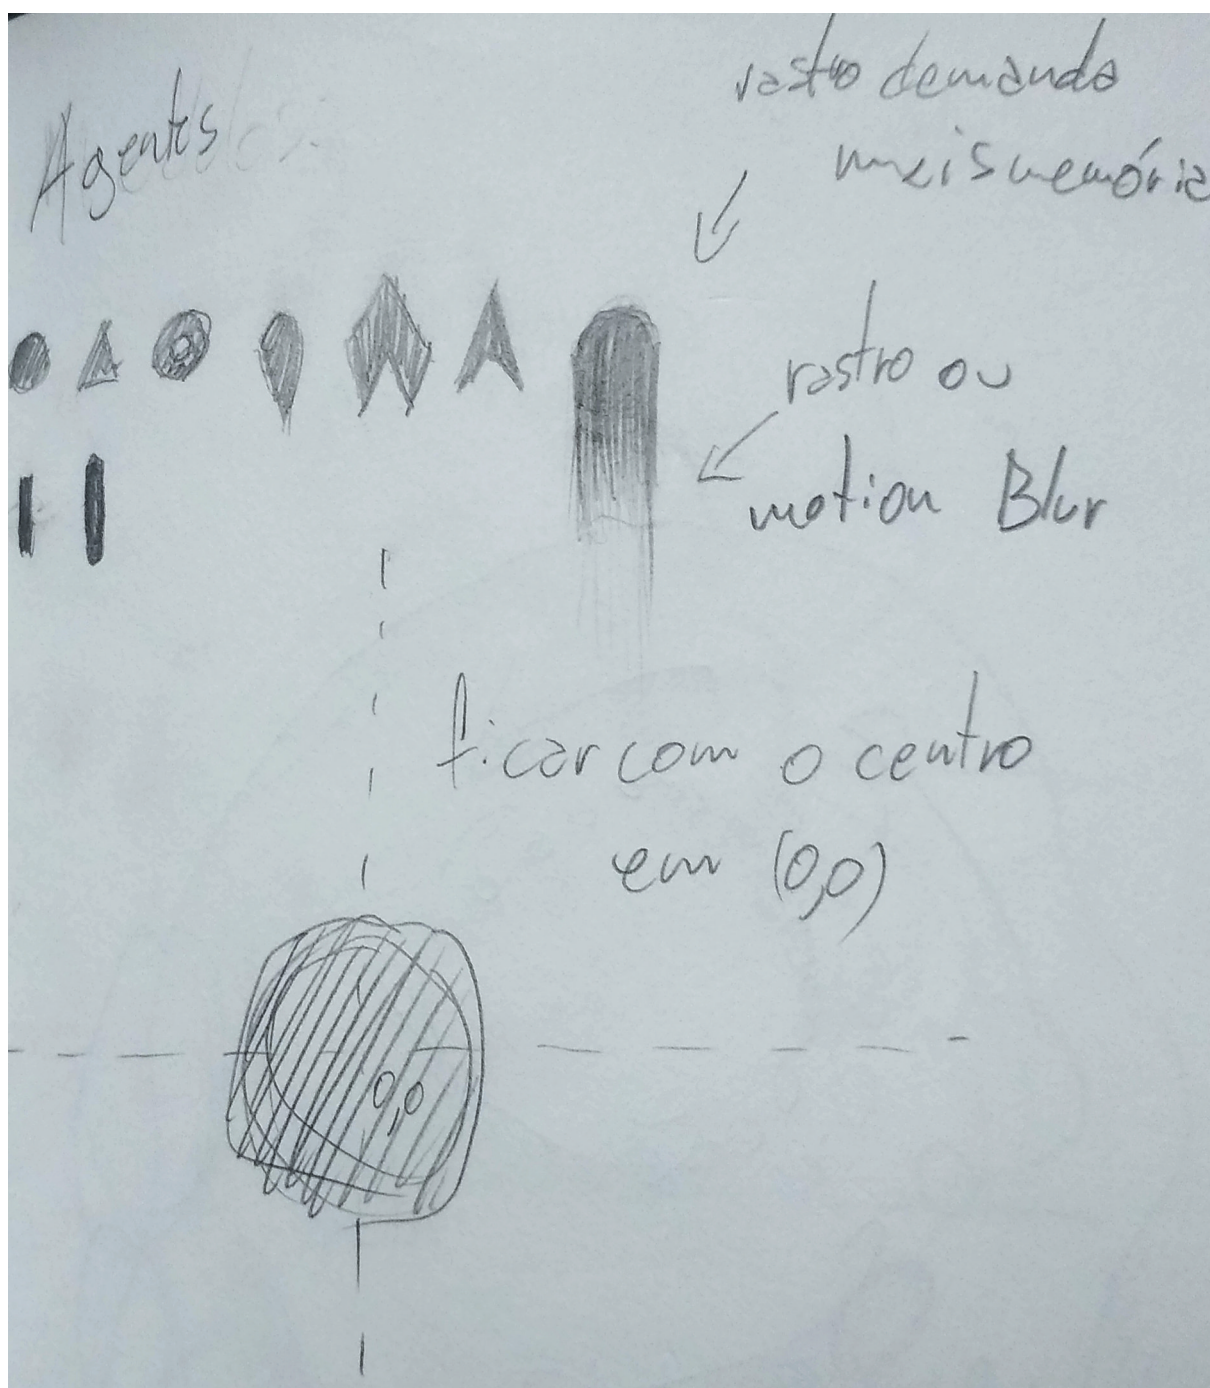 Agentes
rastro demanda
mais memória
rastro ou
motion Blur
ficar com o centro
em (0,0)
0,0